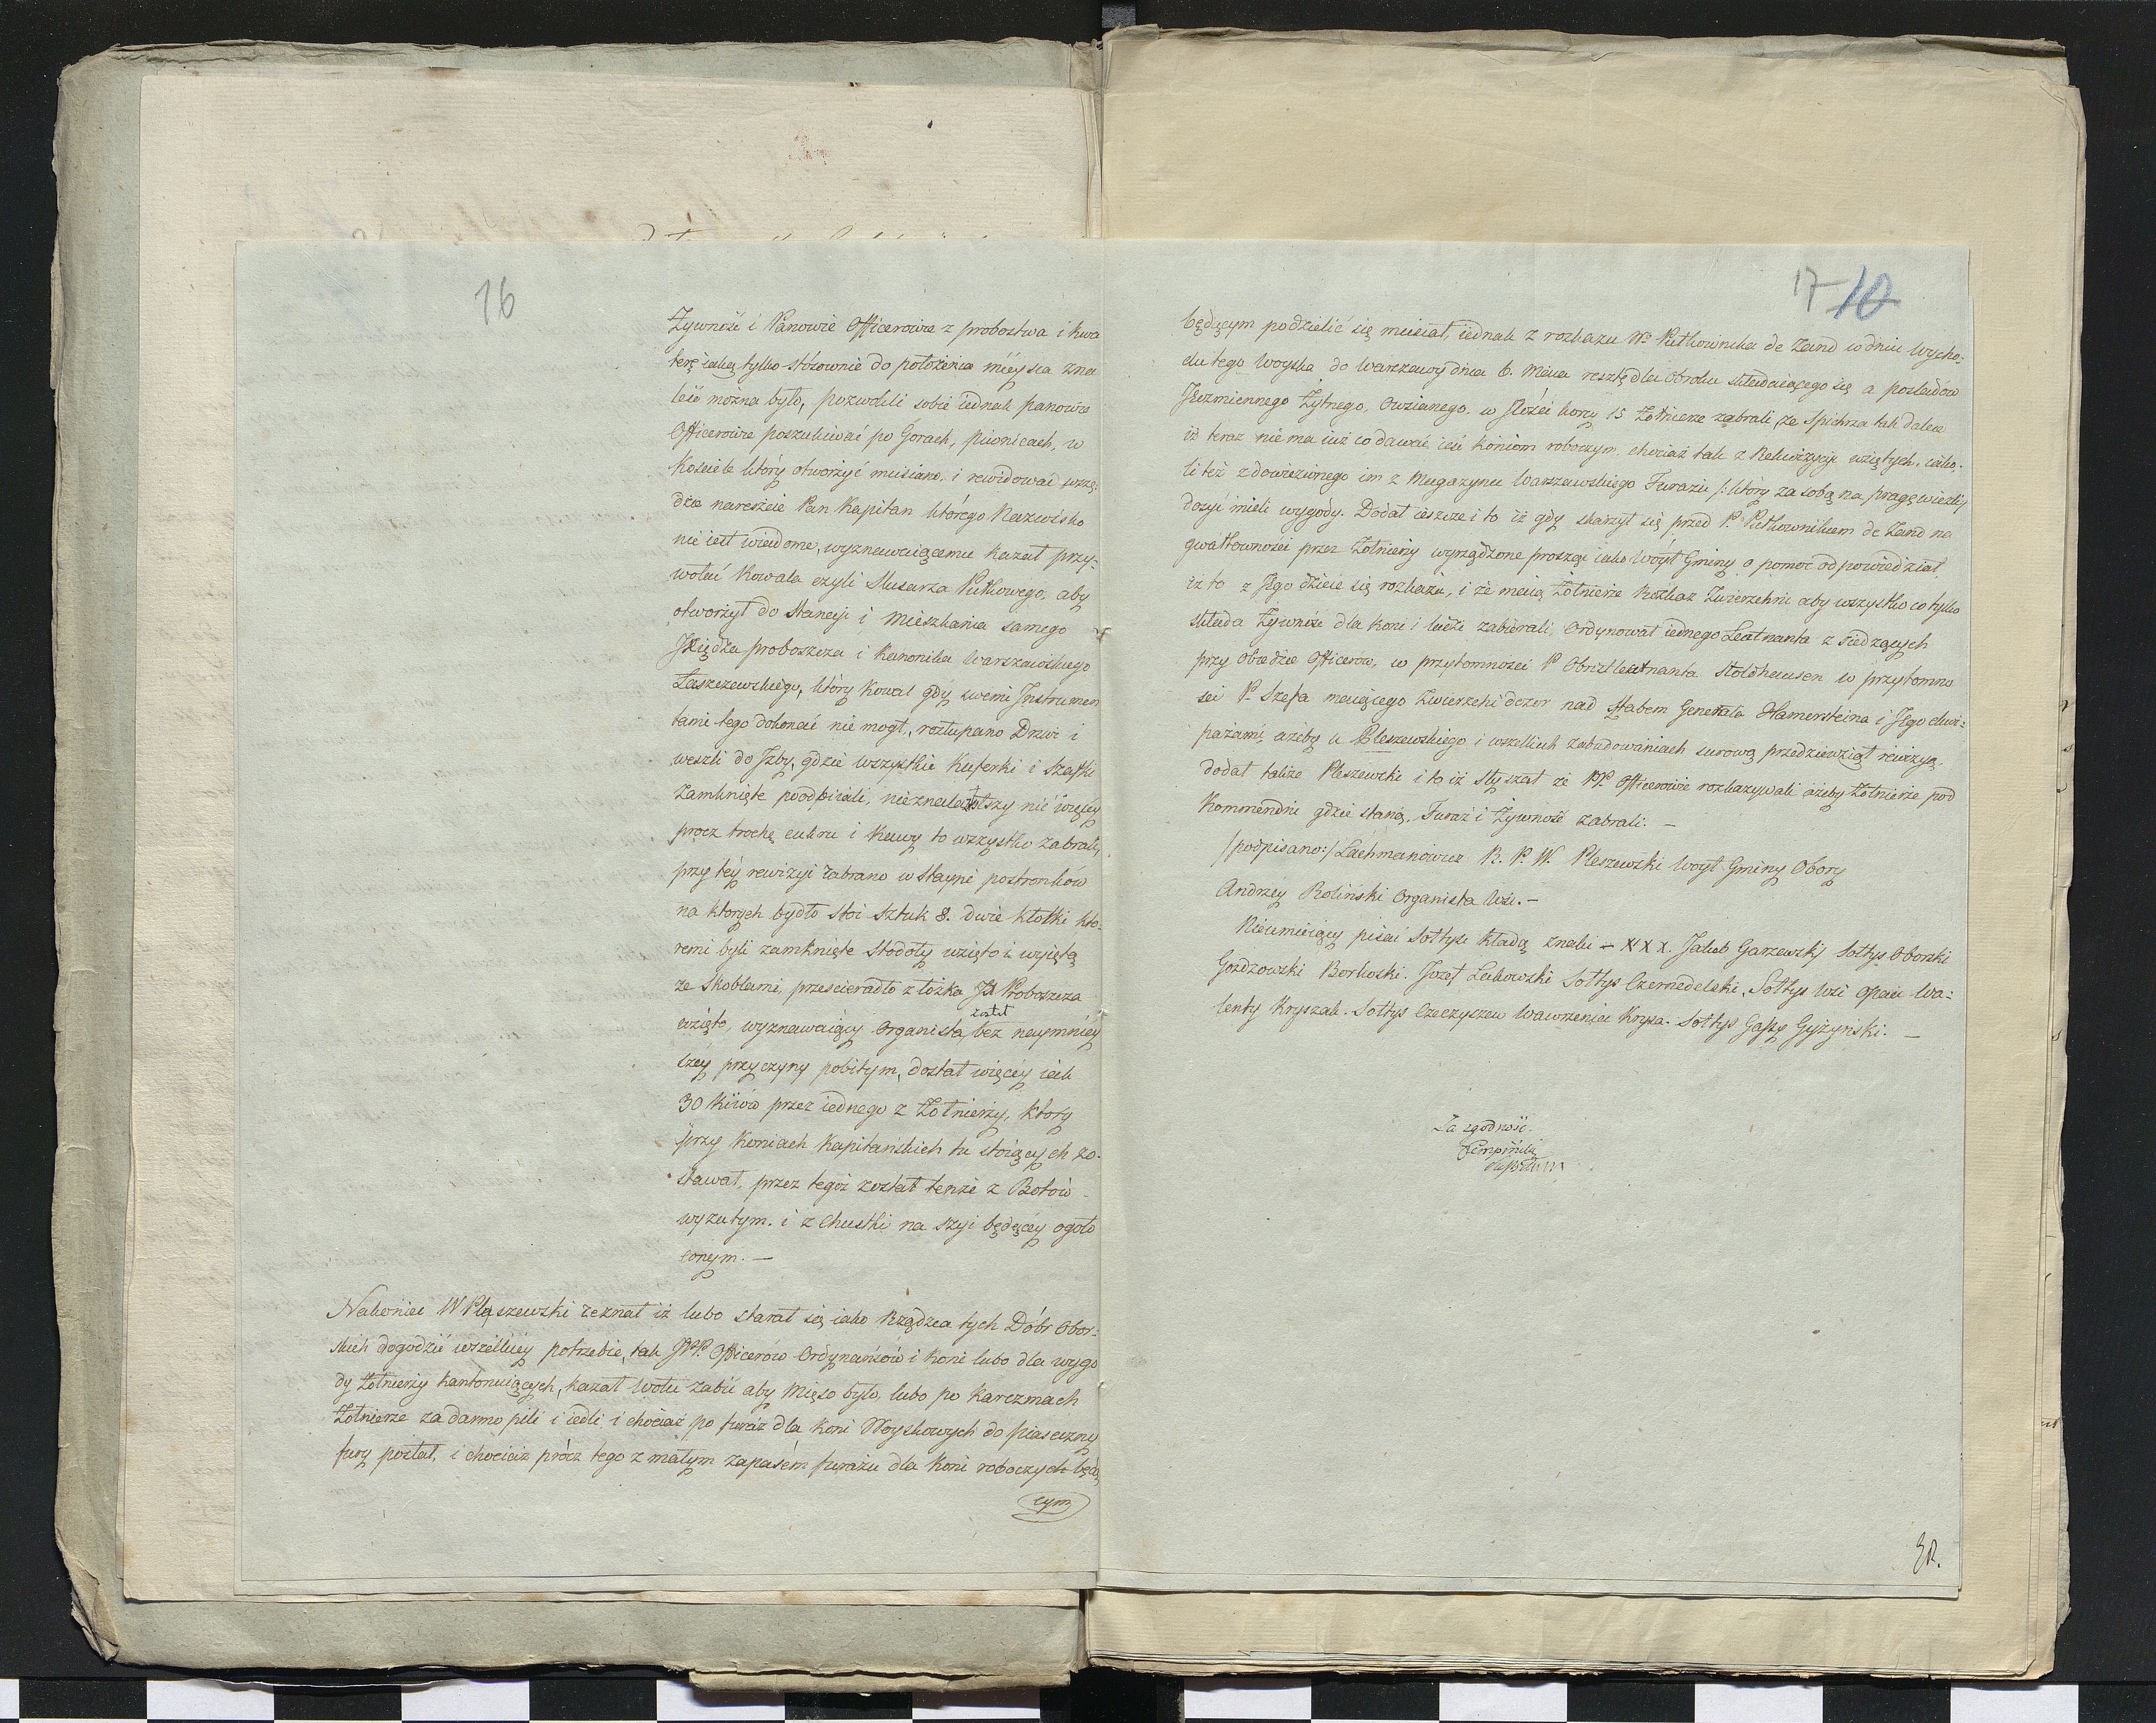 16
Żywność i Panowie Officerowie z probostwa i kwa
terę iaką tylko stósownie do położenia mieysca zna
leść można było, pozwolili sobie iednak panowie
Officerowie poszukiwać po Gorach, piwnicach, w
Kosciele który otworzyć musiano, i rewidować wszę:
dzie nareszcie Pan Kapitan którego Nazwisko
nie iest wiadome, wyznawaiącemu kazał przy-
wołać Kowala czyli Slusarza Pułkowego, aby
otworzył do Stancyi i Mieszkania samego
JXiędza proboszcza i Kanonika Warszawskiego
Łaszczewskiego, który Kowal gdy swemi Jnstrumen
tami tego dokonać nie mogł, rozłupano Drzwi i
weszli do Jzby, gdzie wszystkie Kuferki i Szafki
Zamknięte poodbiiali, nieznalazłszy nic więcey
procz trochę cukru i Kawy to wszystko zabrali,
przy téy rewizyi zabrano w Stayni postronków
na ktorych bydło stoi sztuk 8. dwie kłotki któ-
remi byli zamknięte Stodoły wzięto i wyięte
ze Skoblami, przescieradło z łożka JX Proboszcza
wzięto, wyznawaiący Organista został bez naymniey
szey przyczyny pobitym, dostał więcéy iak
30 Kiiów przez iednego z Żołnierzy, który
przy Koniach Kapitańskich tu stoiących zo-
stawał, przez tegoż został tenże z Botów
wyzutym. i z Chustki na szyi będącéy ogoło
conym. —
Nakoniec W Pleszewski zeznał iż lubo starał się iako Rządzca tych Dóbr Obor:
skich dogodzić wszelkiey potrzebie, tak JPP. Officerów Ordynansów i Koni lubo dla wygo
dy Żołnierzy kantonuiących, kazał Wołu zabić aby Mięso było, lubo po Karczmach
Żołnierze za darmo pili i iedli i chociaż po furaż dla Koni Woyskowych do piaseczny
fury posłał, i chociaż prócz tego z małym zapasem furażu dla Koni roboczych będą
cym
17 10
będącym podzielić się musiał, iednak z rozkazu Wo Pułkownika de Zand w dniu Wycho:
du tego Woyska do Warszawy dnia 6. Maia resztę dla obroku składaiącego się a posladów
Jęczmiennego Żytnego, Owsianego, w Jlości korcy 15 Żołnierze zabrali, ze Spichrza tak dalece
iż teraz nie ma iuż co dawać ieść koniom roboczym, chociaż tak z Rekwizycyi wziętych, iako
li też z dowiezionego im z Magazynu Warszawskiego Furażu /: który za sobą na pragę wiezli:/
dosyć mieli wygódy. Dodał ieszcze i to iż gdy skarzył się przed P. Pułkownikiem de Zand na
gwałtowności przez Żołnierzy wyrządzone prosząc iako Wóyt Gminy o pomoc odpowiedział
iż to z Jego dzieie się rozkazu, i że maią Żołnierze Rozkaz Zwierzchni aby wszystko co tylko
składa Żywność dla koni i ludzi zabierali, Ordynował iednego Leutnanta z siedzących
przy obiedzie Officerów, w przytomności P. Obristleutnanta Stoldhausen w przytomno
ści P. Szefa maiącego Zwierzchi dozor nad Sztabem Generała Hamersteina i Jego ekwi:
pażami, ażeby u Pleszewskiego i wszelkich zabudowaniach surową przedziewziął rewizyą.
dodał także Pleszewski i to iż słyszał że PP. Officerowie rozkazywali ażeby Żołnierze pod
Kommendni gdzie staną, Furaż i Żywność zabrali. —
/podpisano:/ Lachmanowicz R. P. W. Pleszewski Woyt Gminy Obory
Andrzey Roliński Organista Wsi. —
Nieumieiący pisać Sołtysi kładą znaki — XXX. Jakub Garzewski Sołtys Oborski
Gozdzowski Borkoski. Jozef Lukowski Sołtys Czernedelski, Sołtys Wsi Opacz Wa:
lenty Kryszak. Sołtys Czeczyszew Wawrzeniec Krysa. Sołtys Gassy Gyżyński. —
Za zgodność.